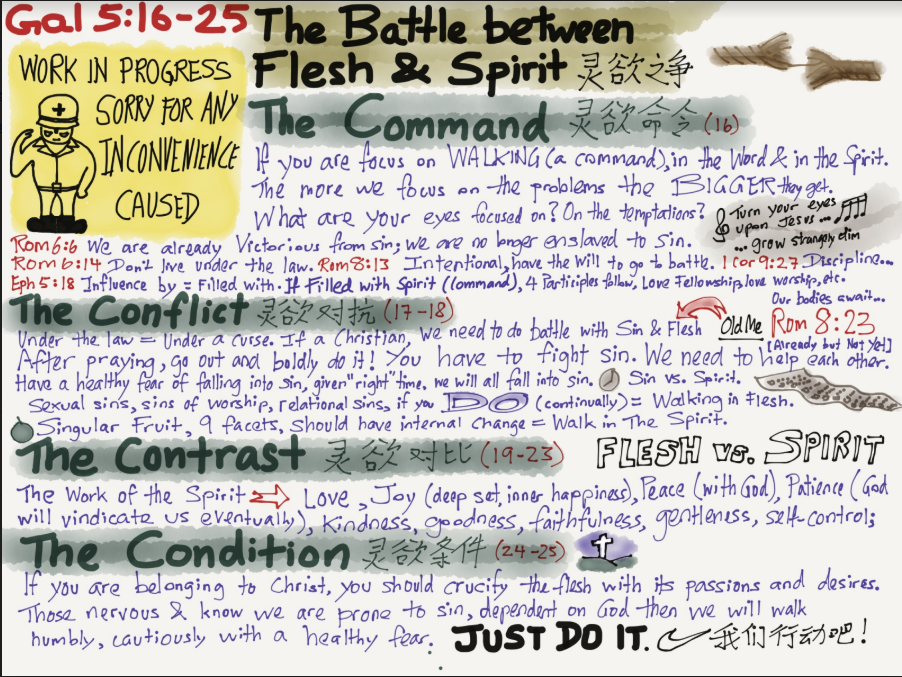 Gal 5:16-25
The Battle between
Flesh & Spirit 灵欲之争
WORK IN PROGRESS
SORRY FOR ANY
INCONVENIENCE
CAUSED
The Command 灵欲命令 (16)
If you are focus on WALKING (a command), in the Word & in the Spirit.
The more we focus on the problems the BIGGER they get.
What are your eyes focused on? On the temptations?
Turn your eyes
upon Jesus...
...grow strangely dim
Rom 6:6 We are already Victorious from sin; we are no longer enslaved to sin.
Rom 6:14 Don't live under the law. Rom 8:13 Intentional, have the will to go to battle. 1 Cor 9:27 Discipline...
Eph 5:18 Influence by = Filled with. If Filled with Spirit (command), 4 Participles follow, Love Fellowship, love worship, etc.
The Conflict 灵欲对抗 (17-18)
Our bodies await...
Old Me Rom 8:23
[Already but Not Yet]
Under the law = Under a curse. If a Christian, we need to do battle with Sin & Flesh
After praying, go out and boldly do it! You have to fight sin. We need to help each other.
Have a healthy fear of falling into sin, given "right" time, we will all fall into sin. Sin vs. Spirit.
Sexual sins, sins of worship, relational sins, if you DO (continually) = Walking in Flesh.
Singular Fruit, 9 facets, should have internal change = Walk in The Spirit.
The Contrast 灵欲对比 (19-23)
FLESH vs. SPIRIT
The Work of the Spirit Love, Joy (deep set, inner happiness), Peace (with God), Patience (God
will vindicate us eventually), Kindness, goodness, faithfulness, gentleness, self-control;
The Condition 灵欲条件 (24-25)
If you are belonging to Christ, you should crucify the flesh with its passions and desires.
Those nervous & know we are prone to sin, dependent on God then we will walk
humbly, cautiously with a healthy fear. JUST DO IT. 我们行动吧!